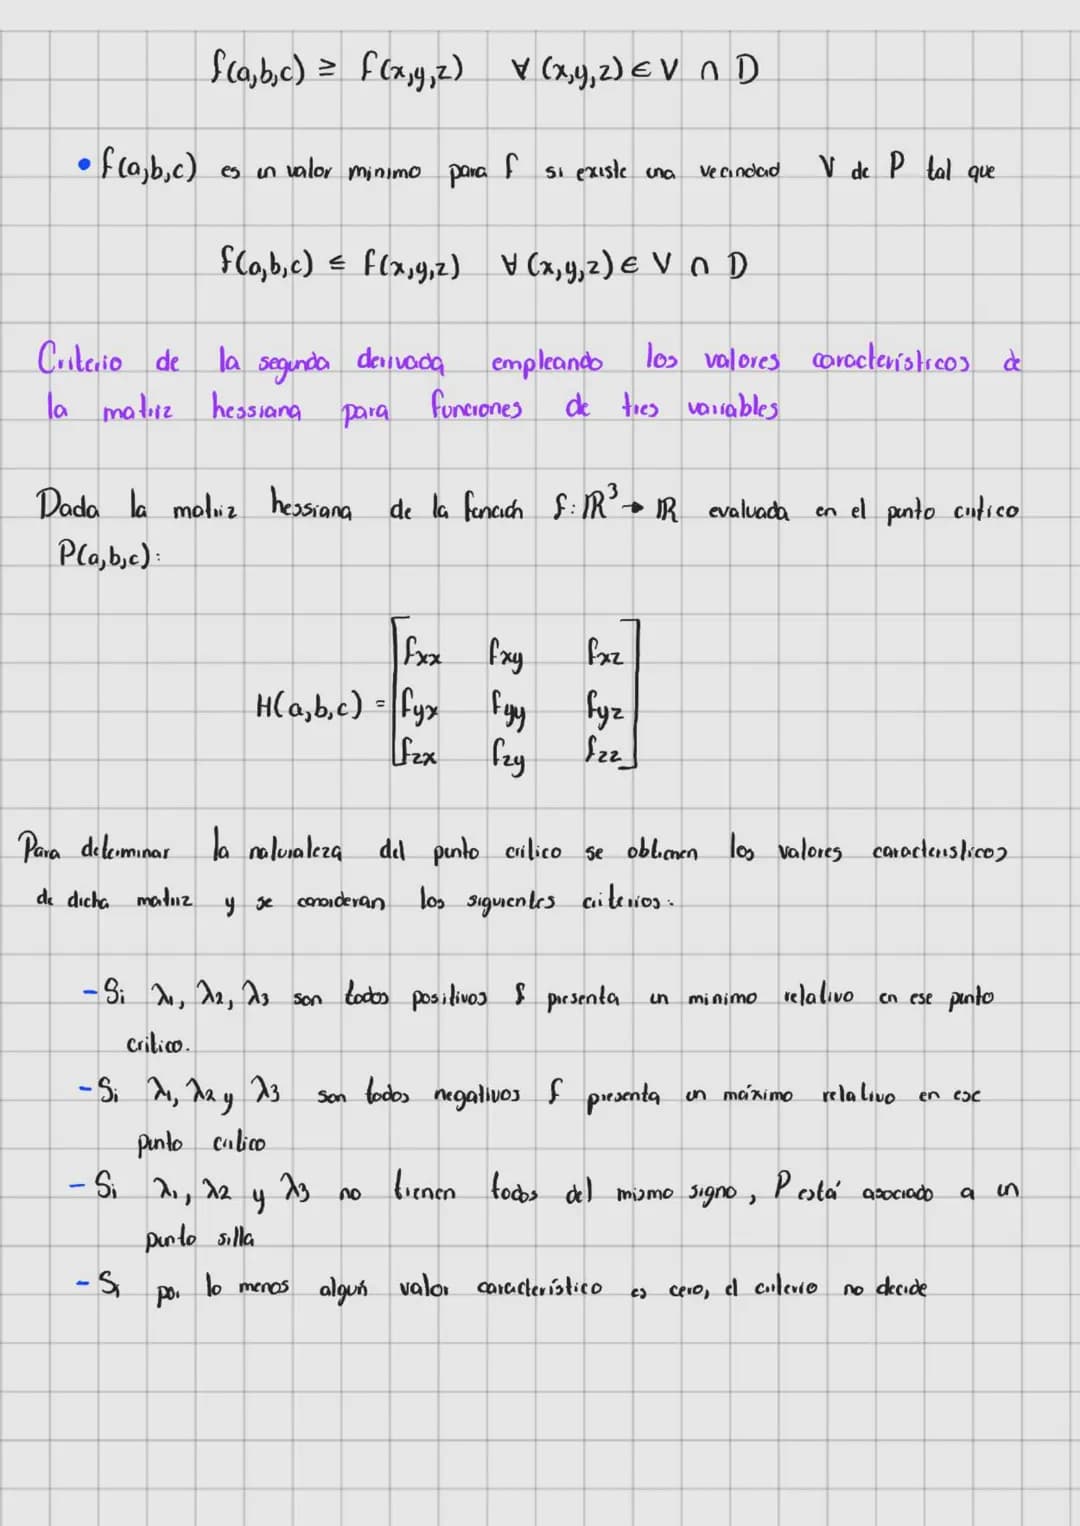 f(a,b,c) ≥ f(x,y,z) ∀ (x,y,z) ∈ V ∩ D
• f(a,b,c) es un valor minimo para f si existe una vecindad V de P tal que
f(a,b,c) ≤ f(x,y,z) ∀ (x,y,z) ∈ V ∩ D
Criterio de la segunda derivada empleando los valores característicos de
la matriz hessiana para funciones de tres variables
Dada la matriz hessiana de la función f: ℝ³ → ℝ evaluada en el punto critico
P(a,b,c):
H(a,b,c) = [fxx fxy fxz
fyx fyy fyz
fzx fzy fzz]
Para determinar la naturaleza del punto critico se obtienen los valores caracteristicos
de dicha matriz y se consideran los siguientes criterios:
- Si λ1, λ2, λ3 son todos positivos f presenta un minimo relativo en ese punto
critico.
- Si λ1, λ2 y λ3 son todos negativos f presenta un máximo relativo en ese
punto critico
- Si λ1, λ2 y λ3 no tienen todos del mismo signo, P está asociado a un
punto silla
- Si por lo menos algún valor característico es cero, el criterio no decide